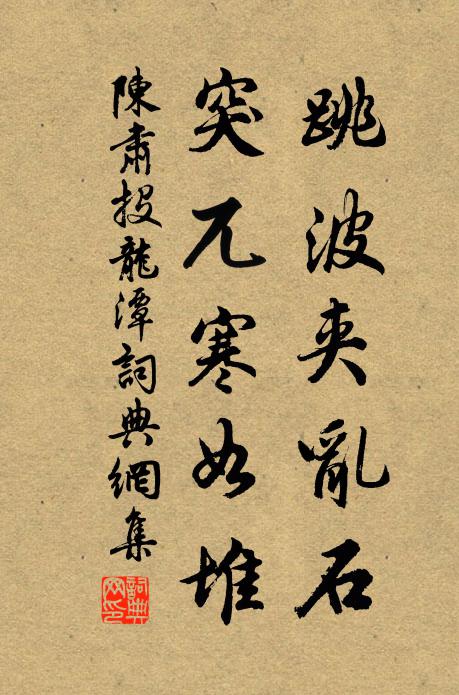 跳波夾亂石
突兀寒如堆
陳肅投龍潭詞典網集
詞典網印